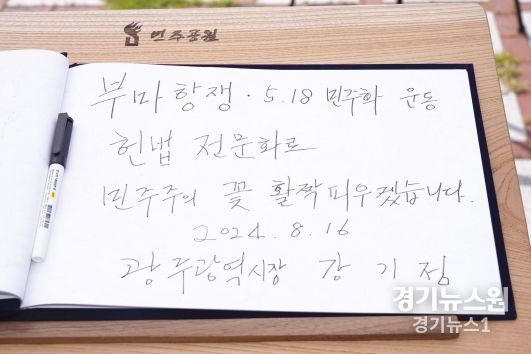 민주공원
부마항쟁·5.18 민주화 운동
헌법 전문화로
민주주의 꽃 활짝 피우겠습니다.
2024. 8. 16
광주광역시장 강기정
경기뉴스원
경기뉴스1